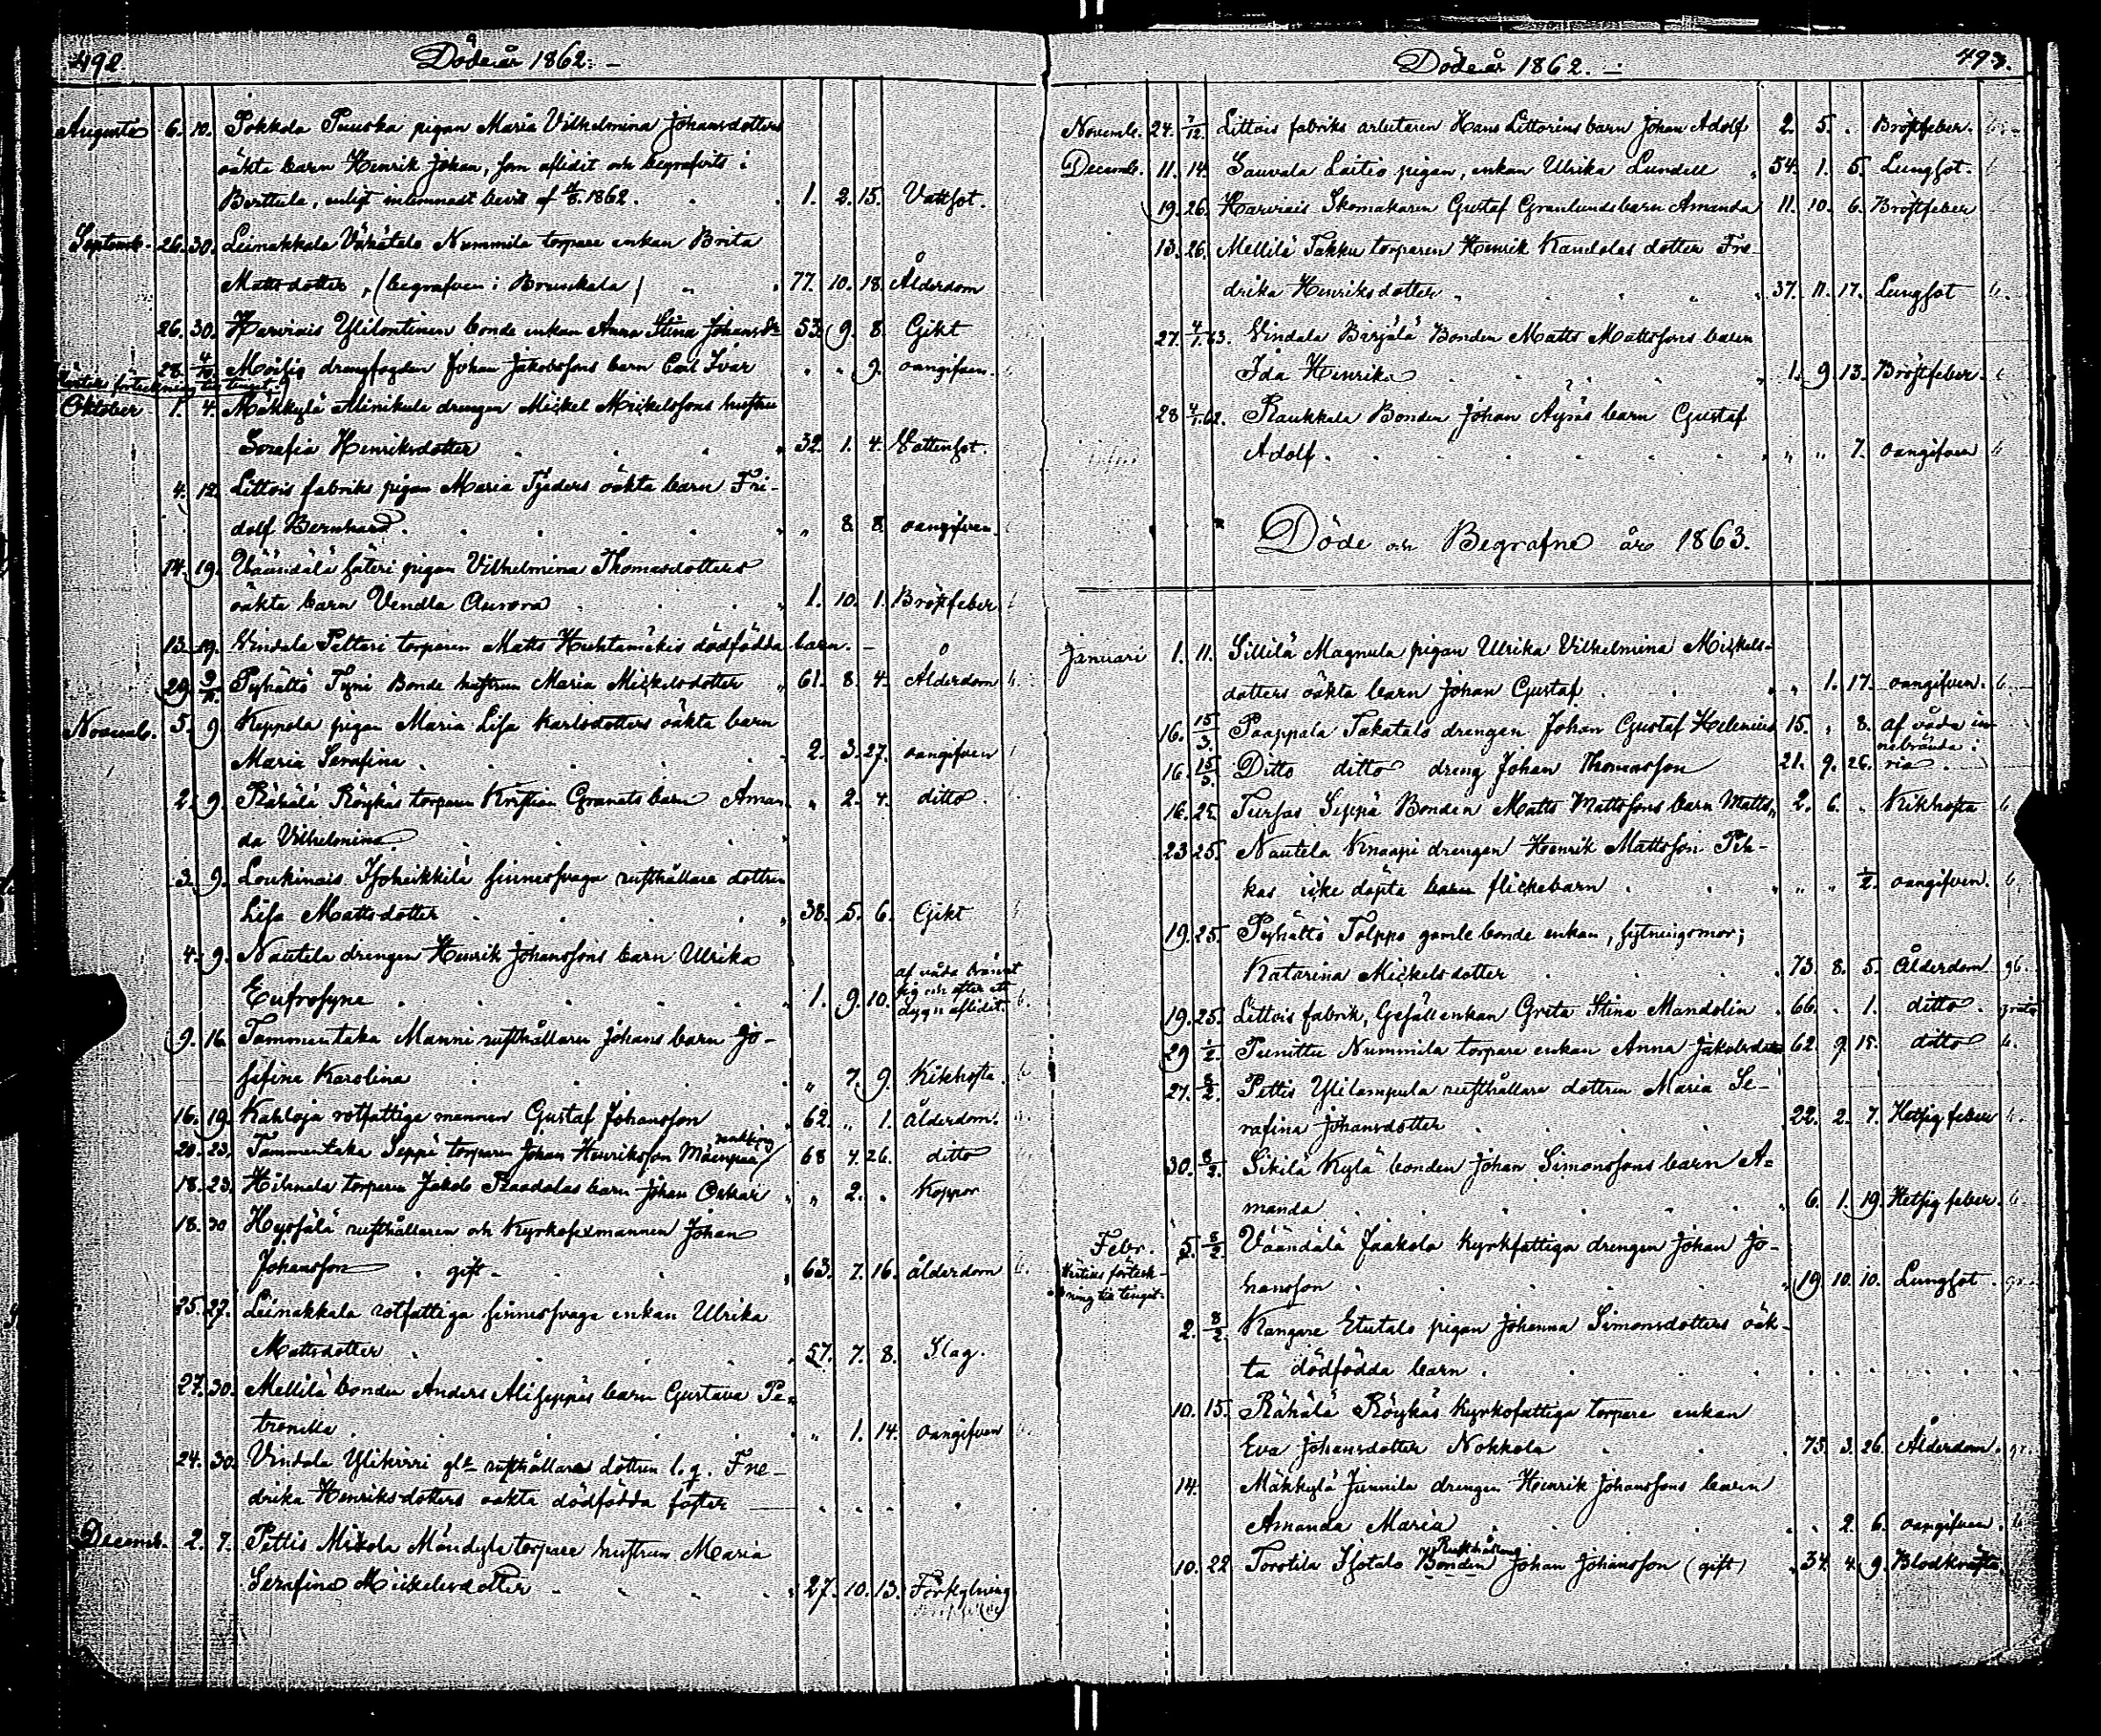 492. Döde år 1862. –
Augusti 6. 10. Pokkola Puuska pigan Maria Vilhelmina Johansdotters
oäkta barn Henrik Johan, som aflidit och begrafvits i
Berttula, enligt inlemnadt bevis af 4/8. 1862. 1. 2. 15. Vattsot.
Septemb. 26. 30. Leinakkala Vähätalo Nummila torpare enkan Brita
Mattsdotter, (begrafven i Brunkala) 77. 10. 18. Ålderdom
26. 30. Harviais Ylilontinen bonde enkan Anna Stina Johansdr 53. 9. 8. Gikt
28. 4/10. Moisio drengfogden Johan Jakobssons barn Carl Ivar " " 9. oangifven.
förteckning till tinget.
Oktober 1. 4. Mäkkylä Alinikula drengen Mickel Mickelssons hustru
Serafia Henriksdotter 32. 1. 4. Vattensot.
4. 12. Littois fabriks pigan Maria Tjeders oäkta barn Fri-
dolf Bernhard. " 8. 8. oangifven.
14. 19. Väändälä säteri pigan Vilhelmina Thomasdotters
oäkta barn Vendla Aurora 1. 10. 1. Bröstfeber.
13. 19. Vindala Pettari torparen Matts Huhtamäkis dödfödda barn. –
29. 9/11. Pyhältö Tyni Bonde hustrun Maria Mickelsdotter 61. 8. 4. Ålderdom
Novemb. 5. 9. Keppola pigan Maria Lisa Karlsdotters oäkta barn
Maria Serafina. 2. 3. 27. oangifven
2. 9. Rähälä Röykäs torparen Kristian Granats barn Aman- " 2. 4. ditto.
da Vilhelmina.
3. 9. Loukinais Isoheikkilä sinnessvaga rusthållare dottren
Lisa Mattsdotter 38. 5. 6. Gikt
4. 9. Nautela drengen Henrik Johanssons barn Ulrika
Eufrosyne 1. 9. 10. af våda bränt
sig och efter ett
dygn aflidit.
9. 16. Tammentaka Manni rusthållaren Johans barn Jo-
sefina Karolina " 7. 9. Kikhosta.
16. 19. Kahloja rotfattiga mannen Gustaf Johansson 62. " 1. ålderdom.
20. 23. Tammentaka Seppä torparen Johan Henriksson Mäenpää 68 7. 26. ditto
18. 23. Hihnala torparen Jakob Raadalas barn Johan Oskar " 2. " Koppor
18. 30 Hyssälä rusthållaren och Kyrkosexmannen Johan
Johansson gift. 63. 7. 16. ålderdom
25. 27. Leinakkala rotfattiga sinnessvaga enkan Ulrika
Mattsdotter 57. 7. 8. Slag.
27. 30. Mellilä bonden Anders Aliseppäs barn Gustava Pe-
tronella " 1. 14. oangifven
24. 30. Vindala Ylikirri gle rusthållare dottren l. q. Fre-
drika Henriksdotters oäkta dödfödda foster
Decemb. 2. 7. Pettis Mikola Mändyla torpare hustrun Maria
Serafina Mickelsdotter 27. 10. 13. Förkylning
Döde år 1862. – 493.
Novemb. 24. 7/12. Littois fabriks arbetaren Hans Littorins barn Johan Adolf 2. 5. . Bröstfeber.
Decemb. 11. 14. Sauvala Laitio pigan, enkan Ulrika Lundell 54. 1. 5. Lungsot.
19. 26. Harviais Skomakaren Gustaf Granlunds barn Amanda 11. 10. 6. Bröstfeber
13. 26. Mellilä Takku torparen Henrik Kandolas dotter Fre-
drika Henriksdotter 37. 11. 17. Lungsot
27. 4/1. 63. Vindala Birjälä Bonden Matts Mattssons barn
Ida Henrika 1. 9. 13. Bröstfeber.
28 4/1. 62. Raukkala Bonden Johan Äyräs barn Gustaf
Adolf. " " 7. oangifven
Döde och Begrafne år 1863.
Januari 1. 11. Sillilä Magnula pigan Ulrika Vilhelmina Mickels-
dotters oäkta barn Johan Gustaf " 1. 17. oangifven.
16. 15/3. Paappala Takatalo drengen Johan Gustaf Helenius 15. " 8. af våda in-
nebrända i
16. 15/3. Ditto ditto dreng Johan Thomasson 21. 9. 26. ria.
16. 25. Tursas Seppä Bonden Matts Mattssons barn Matts 2. 6. " Kikhosta
23 25. Nautela Knaapi drengen Henrik Mattsson Peh-
kas icke döpta barn flickebarn " " 1/2. oangifven.
19. 25. Pyhältö Tolppo gamle bonde enkan, sytningsmor;
Katarina Mickelsdotter 73. 8. 5. Ålderdom
19. 25. Littois fabrik, Gesällenkan Greta Stina Mandolin 66. . 1. ditto. gratis
29 1/2. Punittu Nummila torpare enkan Anna Jakobsdotter 62. 9. 15. ditto
27. 8/2. Pettis Ylilampula rusthållare dottren Maria Se-
rafina Johansdotter 22. 2. 7. Hetsig feber
30. 8/2. Sikilä Kylä bonden Johan Simonssons barn A-
manda 6. 1. 19. Hetsig feber.
Febr. 5. 8/2. Väändälä Jaakola kyrkfattiga drengen Johan Jo-
hansson 19. 10. 10. Lungsot.
förteck-
ning till tinget.
2. 8/2. Kangare Etutalo pigan Johanna Simonsdotters oäk-
ta dödfödda barn.
10. 15. Rähälä Röykäs Kyrkofattiga torpare enkan
Eva Johansdotter Nokkola 75. 3. 26. Ålderdom.
14. Mäkkylä Junnila drengen Henrik Johanssons barn
Amanda Maria . 2. 6. oangifven.
Rusthållaren
10. 22 Torotila Isotalo Bonden Johan Johansson (gift) 34. 4. 9. Blodkräfta